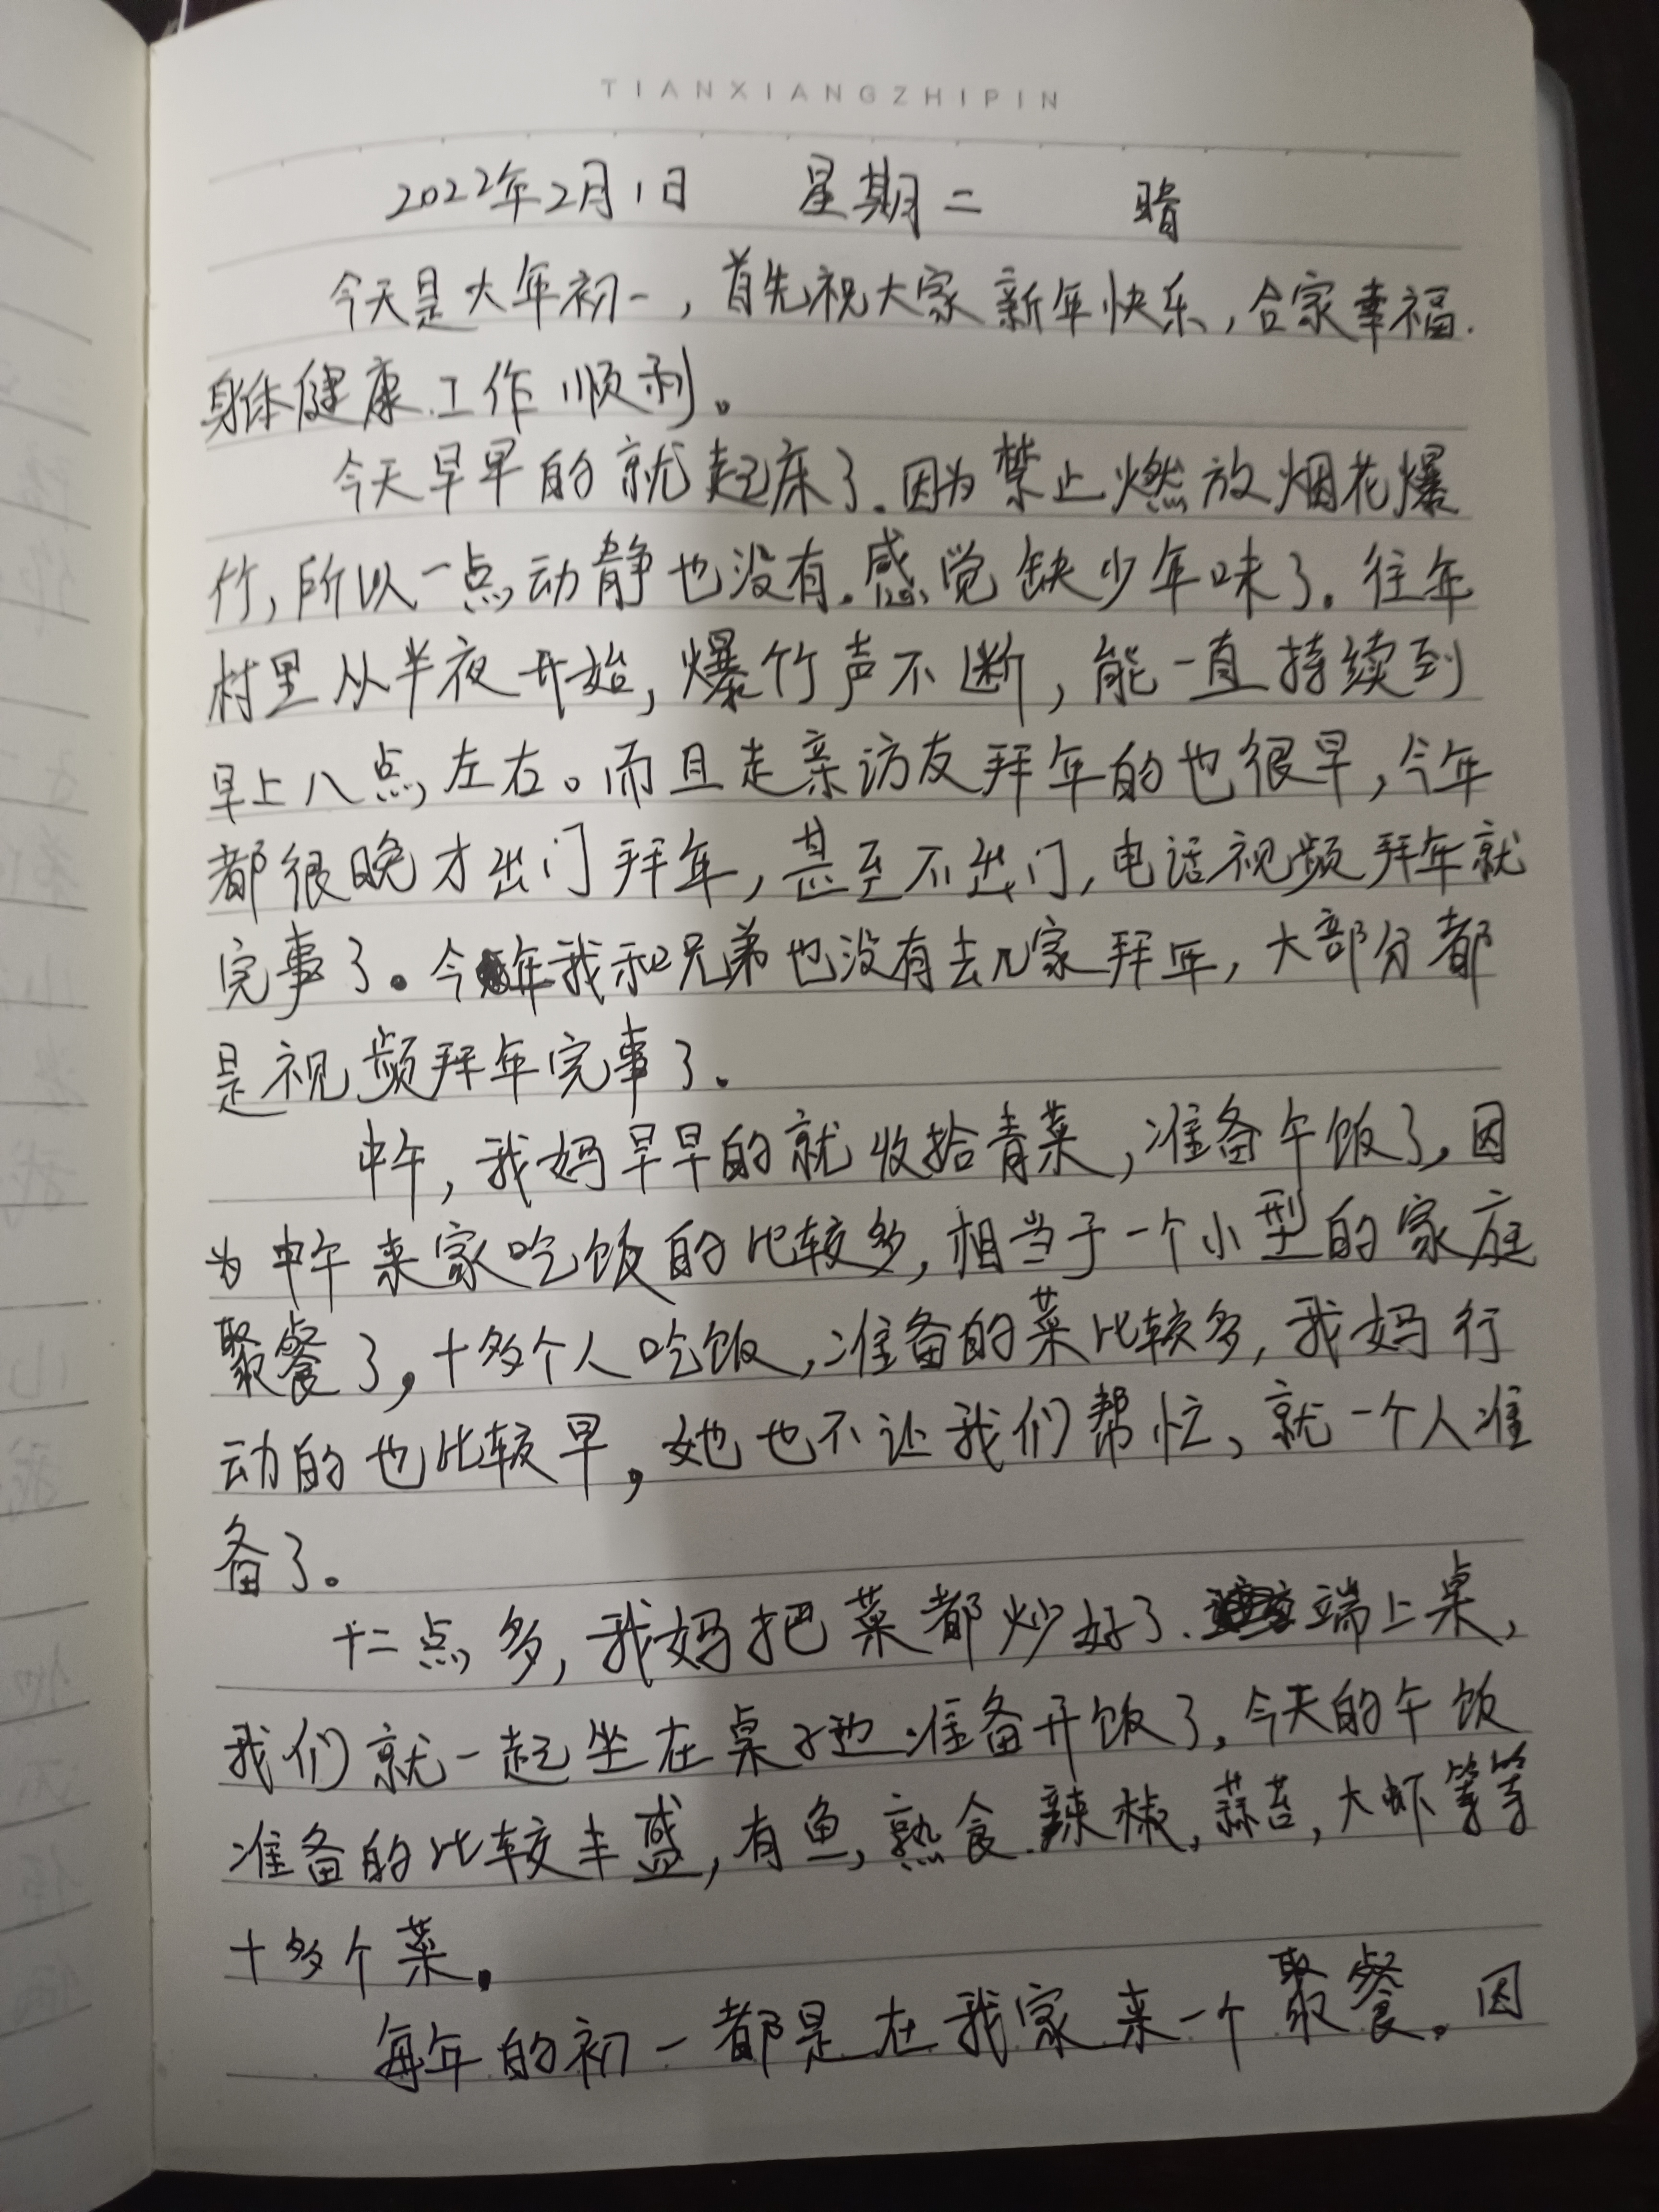 TIANXIANGZHIPIN
2022年2月1日 星期二 晴
今天是大年初一,首先祝大家新年快乐,合家幸福.
身体健康.工作顺利。
今天早早的就起床了.因为禁止燃放烟花爆
竹,所以一点动静也没有.感觉缺少年味了.往年
村里从半夜开始,爆竹声不断,能一直持续到
早上八点左右。而且走亲访友拜年的也很早,今年
都很晚才出门拜年,甚至不出门,电话视频拜年就
完事了。今年我和兄弟也没有去几家拜年,大部分都
是视频拜年完事了.
中午,我妈早早的就收拾青菜,准备午饭了,因
为中午来家吃饭的比较多,相当于一个小型的家庭
聚餐了,十多个人吃饭,准备的菜比较多,我妈行
动的也比较早,她也不让我们帮忙、就一个人准
备了。
十二点多,我妈把菜都炒好了.端上桌,
我们就一起坐在桌子边准备开饭了,今天的午饭
准备的比较丰盛,有鱼,熟食.辣椒,蒜苔,大虾等等
十多个菜.
每年的初一都是在我家来一个聚餐.因